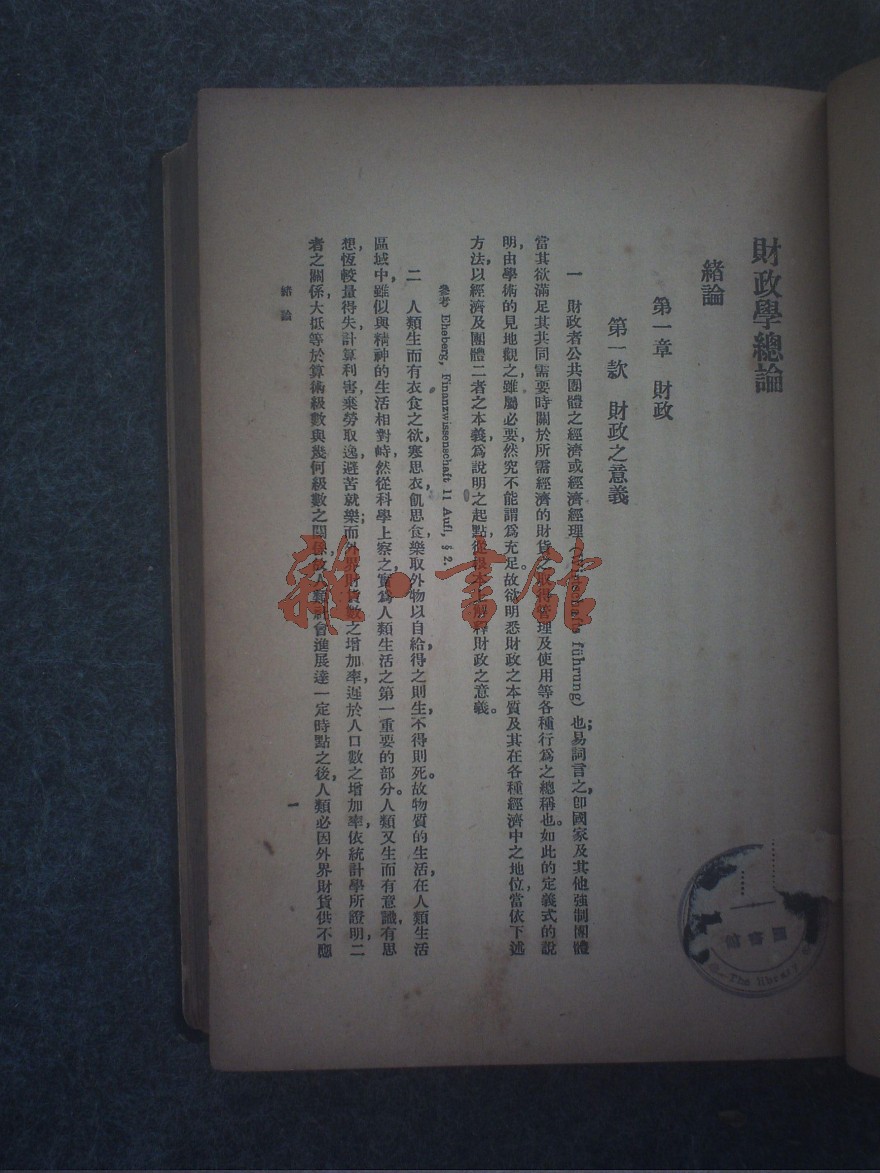 財政學總論
緒論
第一章　財政
第一款　財政之意義
一　財政者公共團體之經濟或經濟經理 schafts führung) 也；易詞言之，卽國家及其他強制團體
當其欲滿足其共同需要時關於所需經濟的財貨之取得管理及使用等各種行爲之總稱也。如此的定義式的說
明，由學術的見地觀之，雖屬必要，然究不能謂爲充足。故欲明悉財政之本質及其在各種經濟中之地位，當依下述
方法以經濟及團體二者之本義爲說明之起點，從根本上解釋財政之意義。
參考 Eheberg, Finanzwissenschaft 11 Aufl, § 2.
二　人類生而有衣食之欲，寒思衣，飢思食，樂取外物以自給，得之則生，不得則死。故物質的生活，在人類生活
區域中，雖似與精神的生活相對峙，然從科學上察之，實爲人類生活之第一重要的部分。人類又生而有意識，有思
想，恆較量得失，計算利害，棄勞取逸，避苦就樂；而外界財貨數之增加率，遲於人口數之增加率，依統計學所證明，二
者之關係，大抵等於算術級數與幾何級數之關係，故人類社會進展達一定時點之後，人類必因外界財貨供不應
緒論
一
圖書館
The library
雜·書館